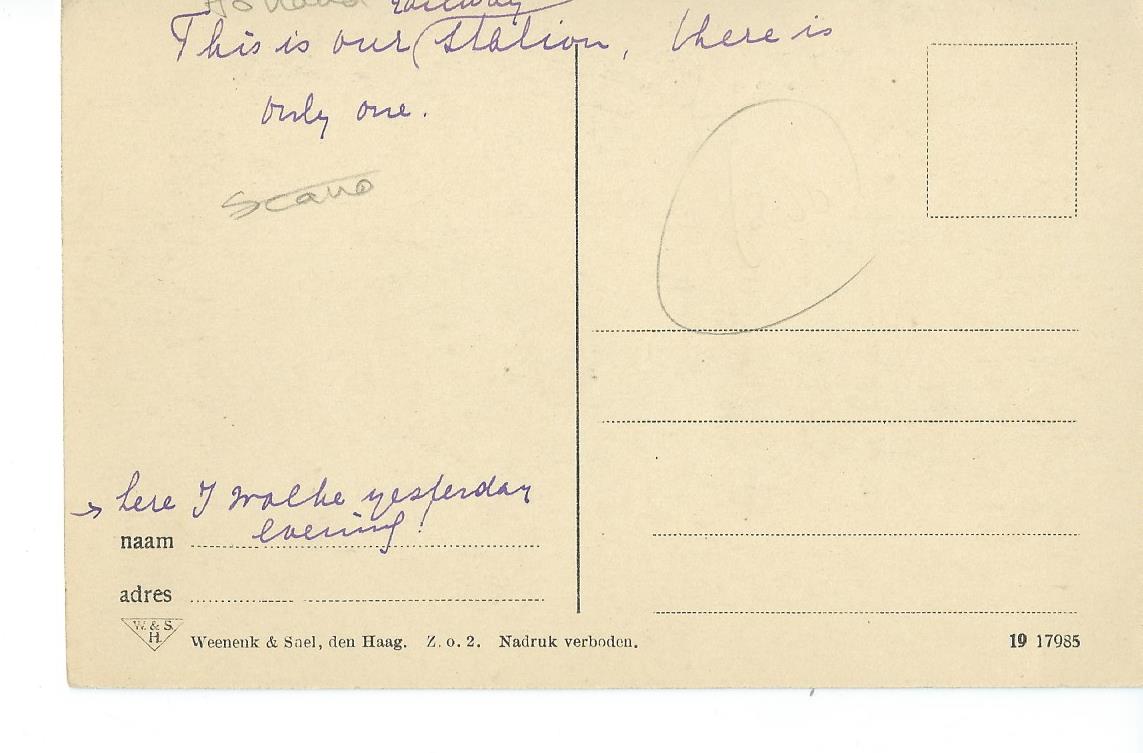 Holland railway
This is our (station, there is
only one.
→ here I walke yesterday
evening!
naam
adres
W. & S.
H.
Weenenk & Snel, den Haag. Z. o. 2. Nadruk verboden.
19 17985